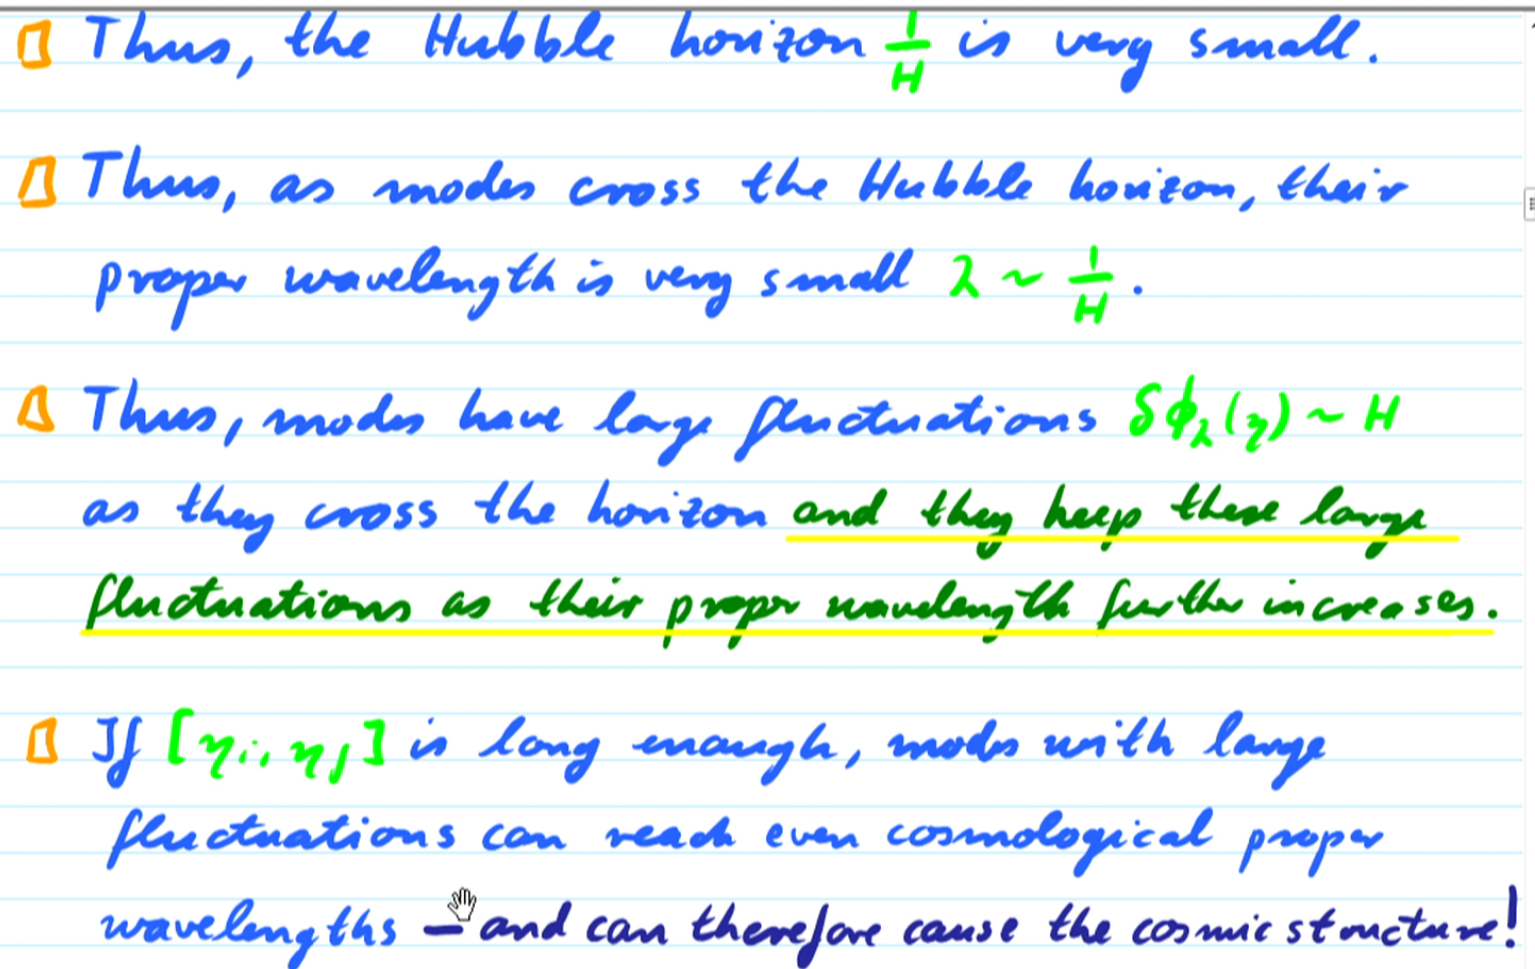 Thus, the Hubble horizon 1/H is very small.
Thus, as modes cross the Hubble horizon, their
proper wavelength is very small λ ~ 1/H.
Thus, modes have large fluctuations δϕ_λ(η) ~ H
as they cross the horizon and they keep these large
fluctuations as their proper wavelength further increases.
If [η_i, η_f] is long enough, modes with large
fluctuations can reach even cosmological proper
wavelengths – and can therefore cause the cosmic structure!